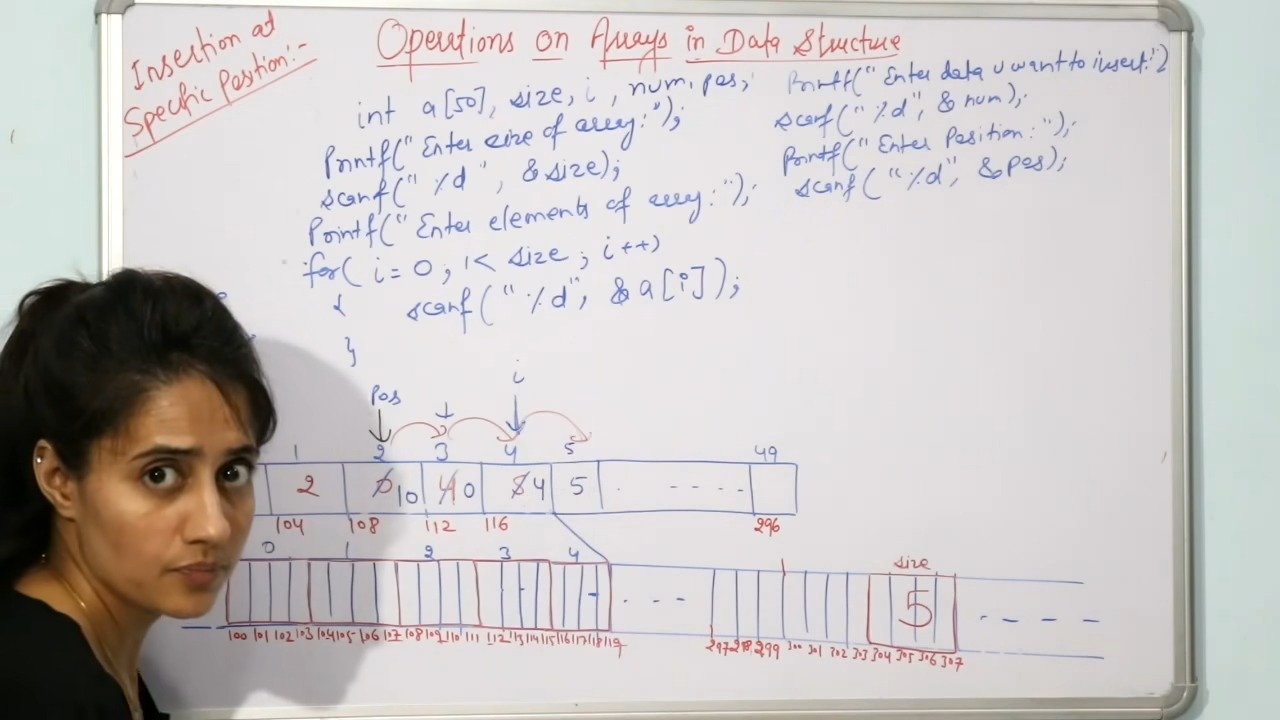 Insertion at
Specific Position:-
Operations on Arrays in Data Structure
int a[50], size, i, num, pos;
Printf("Enter size of array:");
scanf("%d", &size);
Printf("Enter elements of array:");
for( i=0; i< size; i++)
{ scanf("%d", &a[i]);
}
Printf("Enter data u want to insert:")
scanf("%d", &num);
Printf("Enter Position:");
scanf("%d", &pos);
i
Pos
1 2 3 4 5 49
2 10 4 0 4 5 . ----.
104 108 112 116 296
0 1 2 3 4
size
5
100 101 102 103 104 105 106 107 108 109 110 111 112 113 114 115 116 117 118 119
297 298 299 300 301 302 303 304 305 306 307